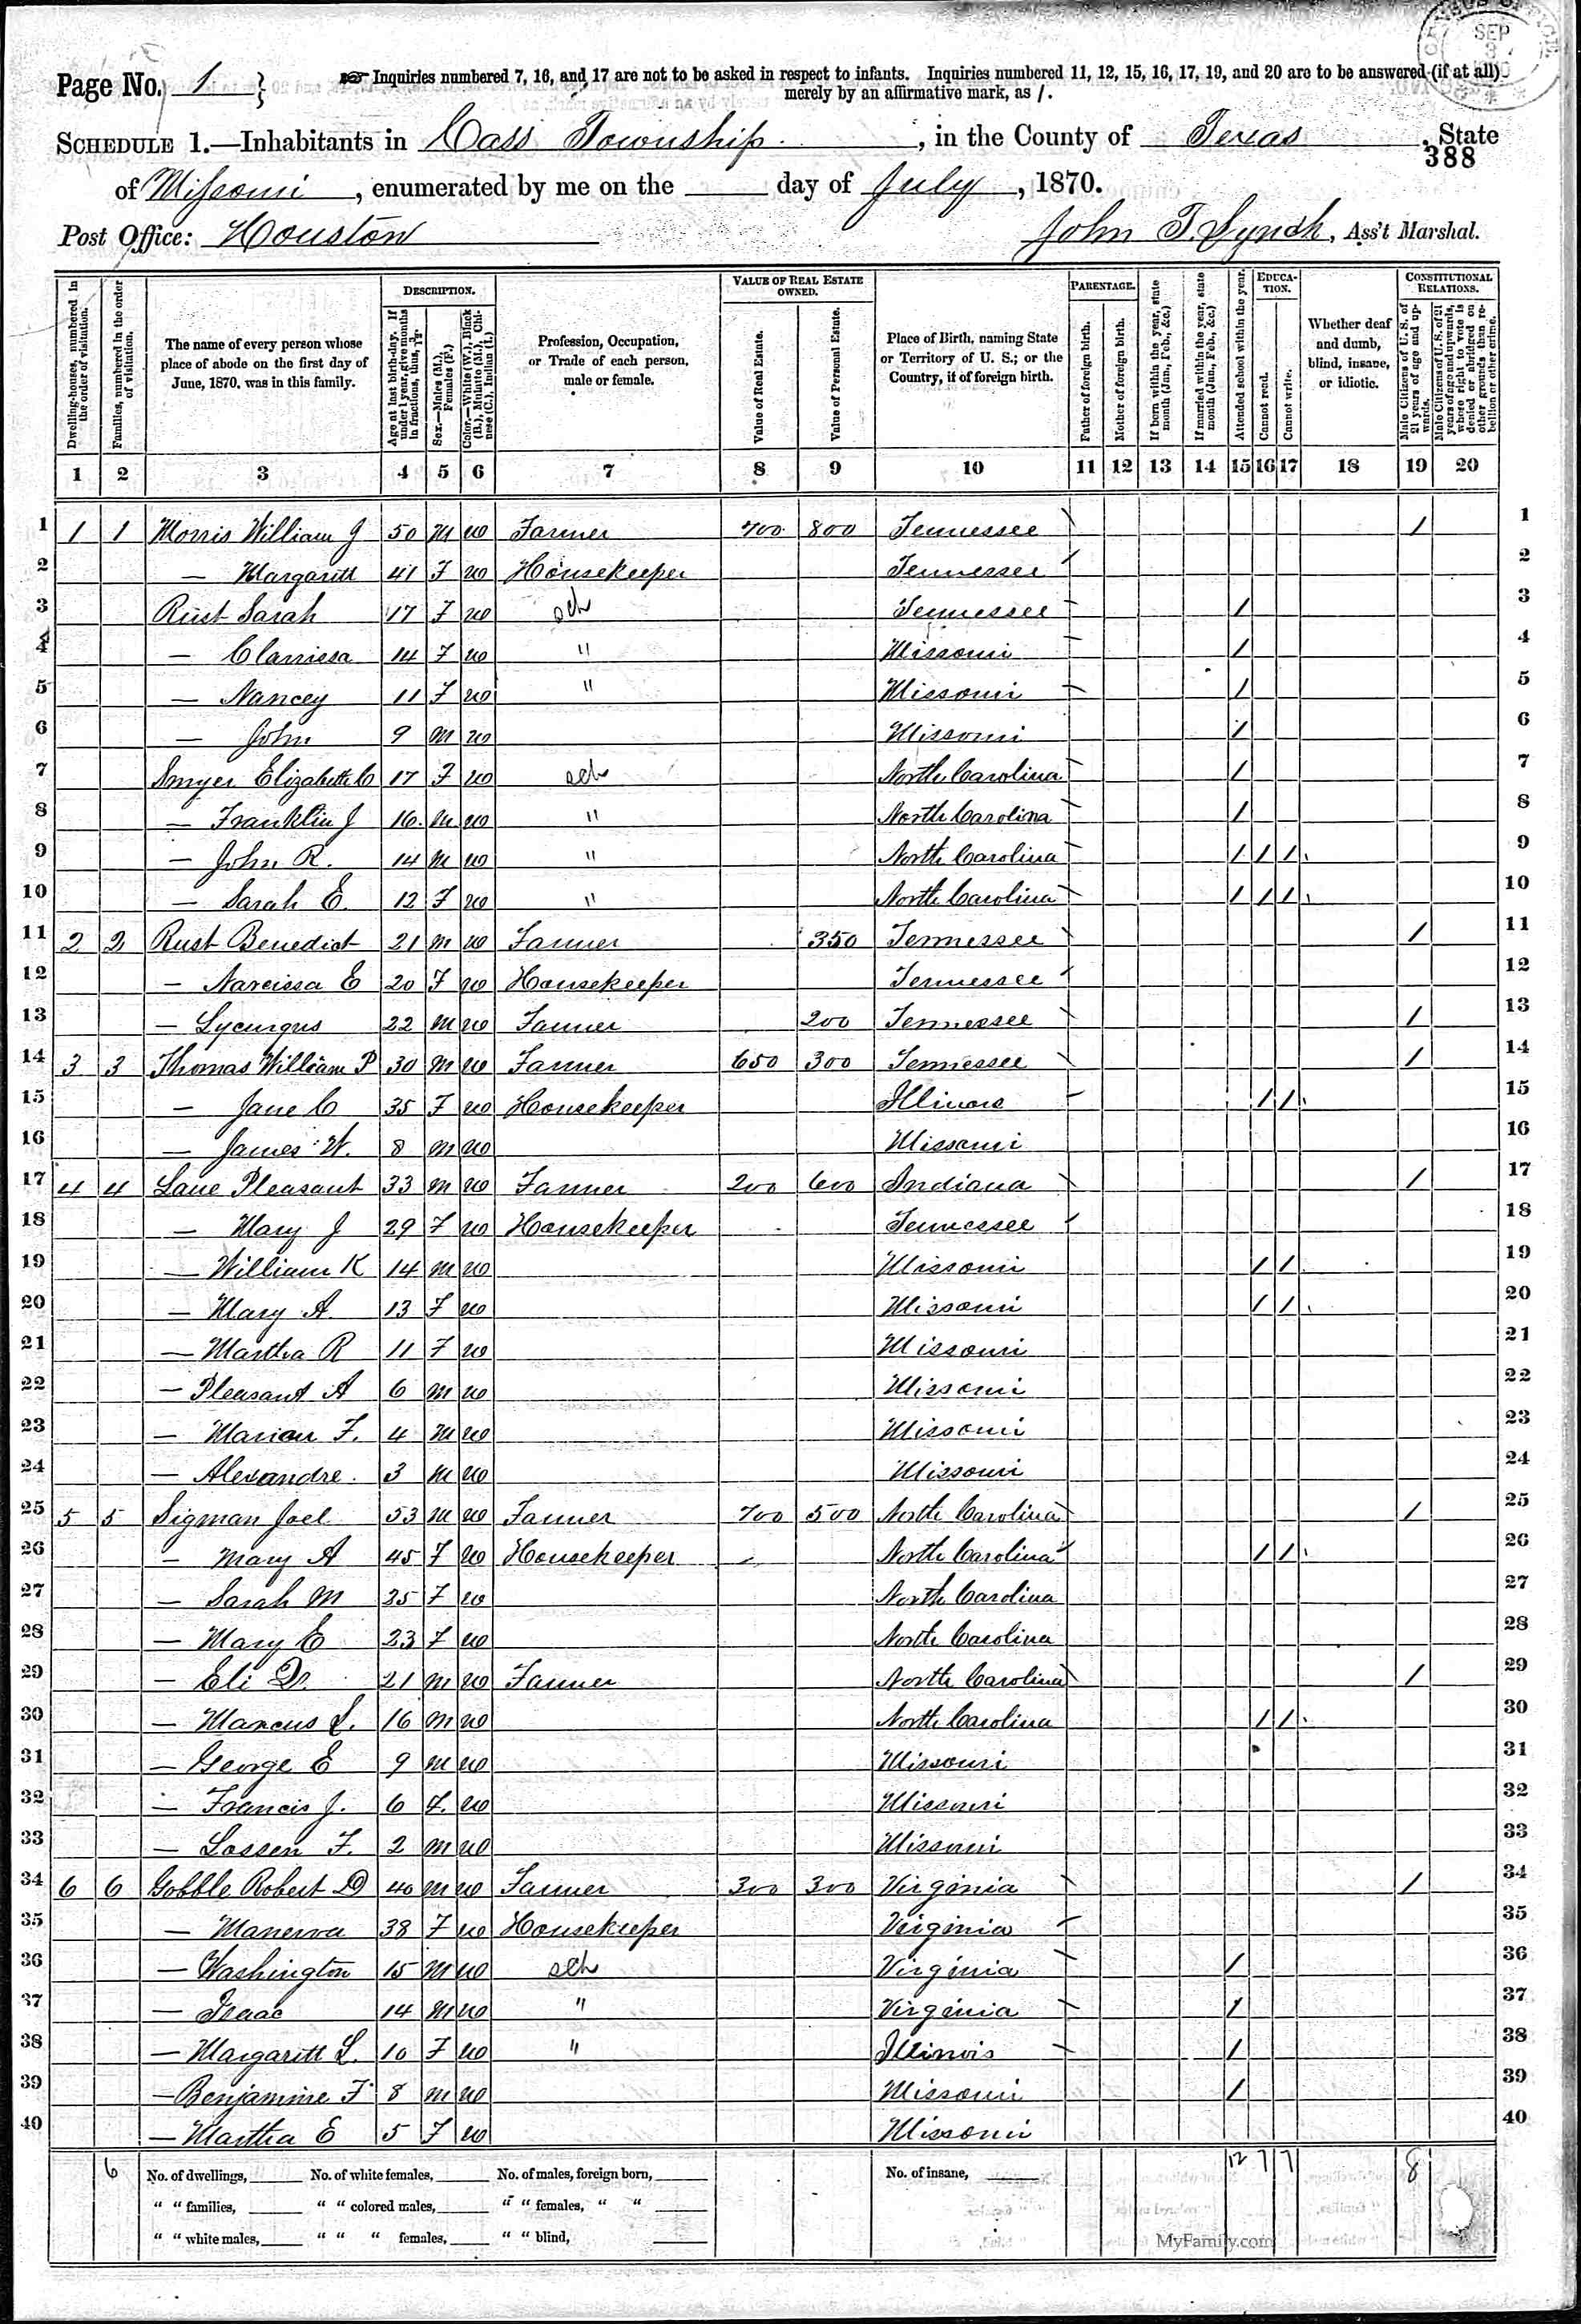 Page No. 1 } Inquiries numbered 7, 16, and 17 are not to be asked in respect to infants. Inquiries numbered 11, 12, 15, 16, 17, 19, and 20 are to be answered (if at all)
merely by an affirmative mark, as /.
SCHEDULE 1.—Inhabitants in Cass Township, in the County of Texas, State
388
of Missouri, enumerated by me on the day of July, 1870.
Post Office: Houston John T. Lynch, Ass't Marshal.
Dwelling-houses, numbered in the order of visitation.
Families, numbered in the order of visitation.
The name of every person whose place of abode on the first day of June, 1870, was in this family.
DESCRIPTION.
Age at last birth-day. If under 1 year, give months in fractions, thus, 3/12.
Sex.—Males (M.), Females (F.)
Color.—White (W.), Black (B.), Mulatto (M.), Chinese (C.), Indian (I.)
Profession, Occupation, or Trade of each person, male or female.
VALUE OF REAL ESTATE OWNED.
Value of Real Estate.
Value of Personal Estate.
Place of Birth, naming State or Territory of U. S.; or the Country, if of foreign birth.
PARENTAGE.
Father of foreign birth.
Mother of foreign birth.
If born within the year, state month (Jan., Feb., &c.)
If married within the year, state month (Jan., Feb., &c.)
Attended school within the year.
EDUCATION.
Cannot read.
Cannot write.
Whether deaf and dumb, blind, insane, or idiotic.
CONSTITUTIONAL RELATIONS.
Male Citizens of U. S. of 21 years of age and upwards.
Male Citizens of U. S. of 21 years of age and upwards, where right to vote is denied or abridged on other grounds than rebellion or other crime.
1 2 3 4 5 6 7 8 9 10 11 12 13 14 15 16 17 18 19 20
1 1 1 Morris William J 50 M W Farmer 700 800 Tennessee / 1
2 — Margarett 41 F W Housekeeper Tennessee 2
3 Rust Sarah 17 F W sch Tennessee / 3
4 — Clarrissa 14 F W " Missouri / 4
5 — Nancey 11 F W " Missouri / 5
6 — John 9 M W Missouri / 6
7 Smyer Elizabeth C 17 F W sch North Carolina / 7
8 — Franklin J 16 M W " North Carolina / 8
9 — John R. 14 M W " North Carolina / / / 9
10 — Sarah E. 12 F W " North Carolina / / / 10
11 2 2 Rust Benedict 21 M W Farmer 350 Tennessee / 11
12 — Narcissa E 20 F W Housekeeper Tennessee 12
13 — Lycurgus 22 M W Farmer 200 Tennessee / 13
14 3 3 Thomas William P 30 M W Farmer 650 300 Tennessee / 14
15 — Jane C 35 F W Housekeeper Illinois / / 15
16 — James W. 8 M W Missouri 16
17 4 4 Lane Pleasant 33 M W Farmer 200 600 Indiana / 17
18 — Mary J 29 F W Housekeeper Tennessee 18
19 — William K 14 M W Missouri / / 19
20 — Mary A. 13 F W Missouri / / 20
21 — Martha R 11 F W Missouri 21
22 — Pleasant A 6 M W Missouri 22
23 — Marion F. 4 M W Missouri 23
24 — Alexandre 3 M W Missouri 24
25 5 5 Sigman Joel 53 M W Farmer 700 500 North Carolina / 25
26 — Mary A 45 F W Housekeeper North Carolina / / 26
27 — Sarah M 25 F W North Carolina 27
28 — Mary E 23 F W North Carolina 28
29 — Eli D. 21 M W Farmer North Carolina / 29
30 — Marcus L. 16 M W North Carolina / / 30
31 — George E 9 M W Missouri 31
32 — Francis J. 6 F. W Missouri 32
33 — Lossen F. 2 M W Missouri 33
34 6 6 Gobble Robert D 40 M W Farmer 300 300 Virginia / 34
35 — Manerva 38 F W Housekeeper Virginia 35
36 — Washington 15 M W sch Virginia / 36
37 — Isaac 14 M W " Virginia / 37
38 — Margarett L. 10 F W " Illinois / 38
39 — Benjamine F 8 M W Missouri / 39
40 — Martha E 5 F W Missouri 40
6 No. of dwellings, No. of white females, No. of males, foreign born, No. of insane, 12 7 7 8
" " families, " " colored males, " " females, " "
" " white males, " " " females, " " blind,
MyFamily.com